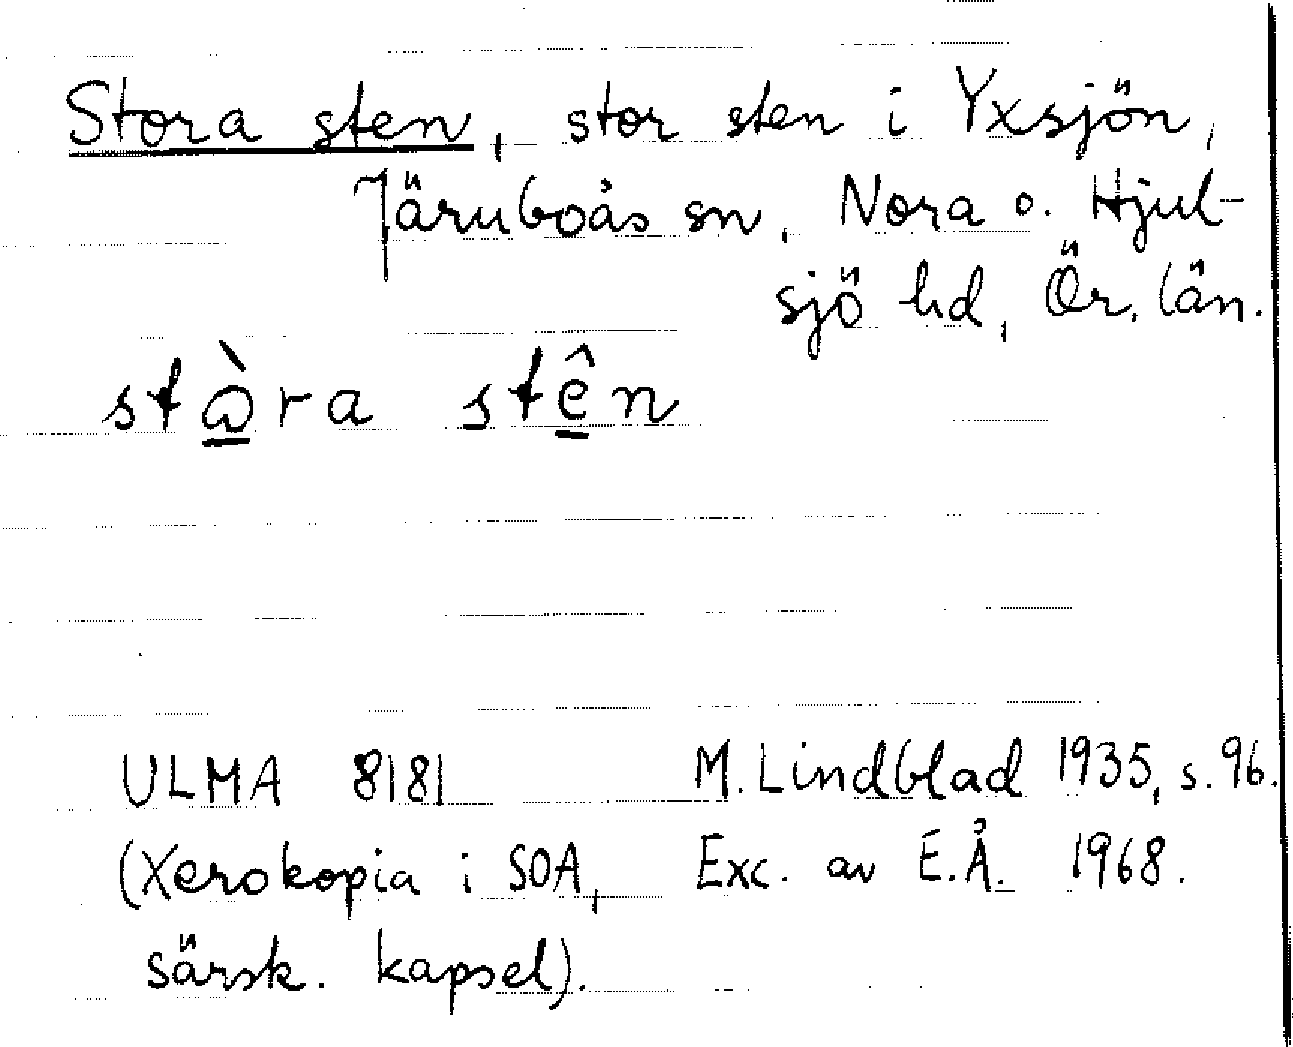 Stora sten, stor sten i Yxsjön,
Järnboås sn, Nora o. Hjul-
sjö hd, Ör. län.
stὼ̲ra stê̲n
ULMA 8181 M. Lindblad 1935, s. 96.
(Xerokopia i SOA, Exc. av E.Å. 1968.
särsk. kapsel).